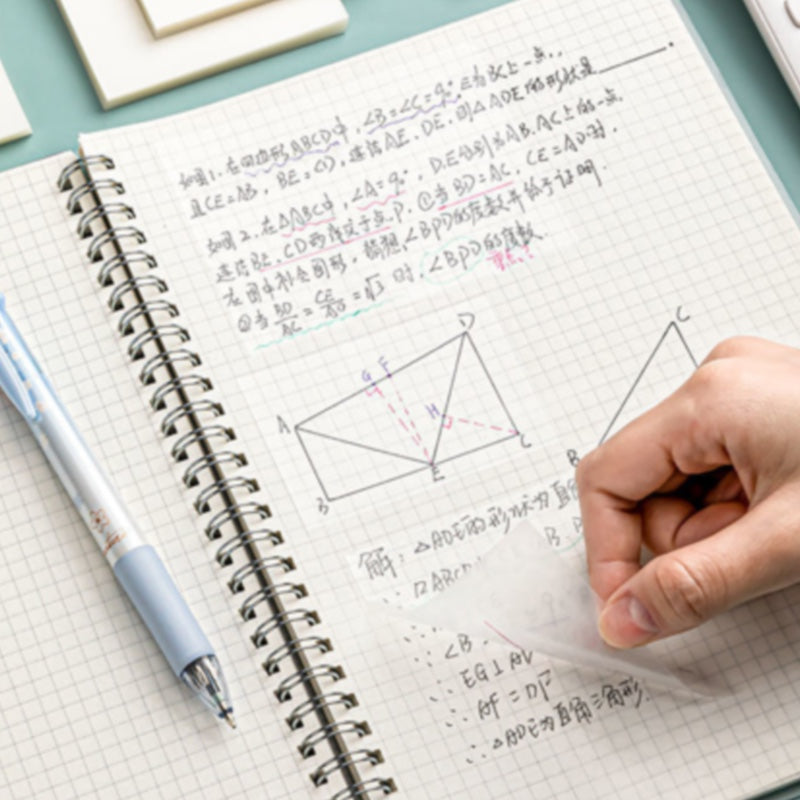 如图1.在四边形ABCD中,∠B=∠C=90°,E为BC上一点,
且CE=AB,BE=CD,连结AE、DE.则△ADE的形状是
如图2.在△ABC中,∠A=90°,D.E分别为AB.AC上的一点,
连结BE、CD两线交于点P.①当BD=AC,CE=AD时,
在图中补全图形,猜想∠BPD的度数并给予证明.
②当BD/AC=CE/AD=√3时,∠BPD的度数.
重点!
D
C
G F
A
H
C
E
B
B
解:△ADE的形状为直角
∵ □ABCD
∠B
∵ EG⊥AD
∵ AF=DF
∴ △ADE为直角三角形.